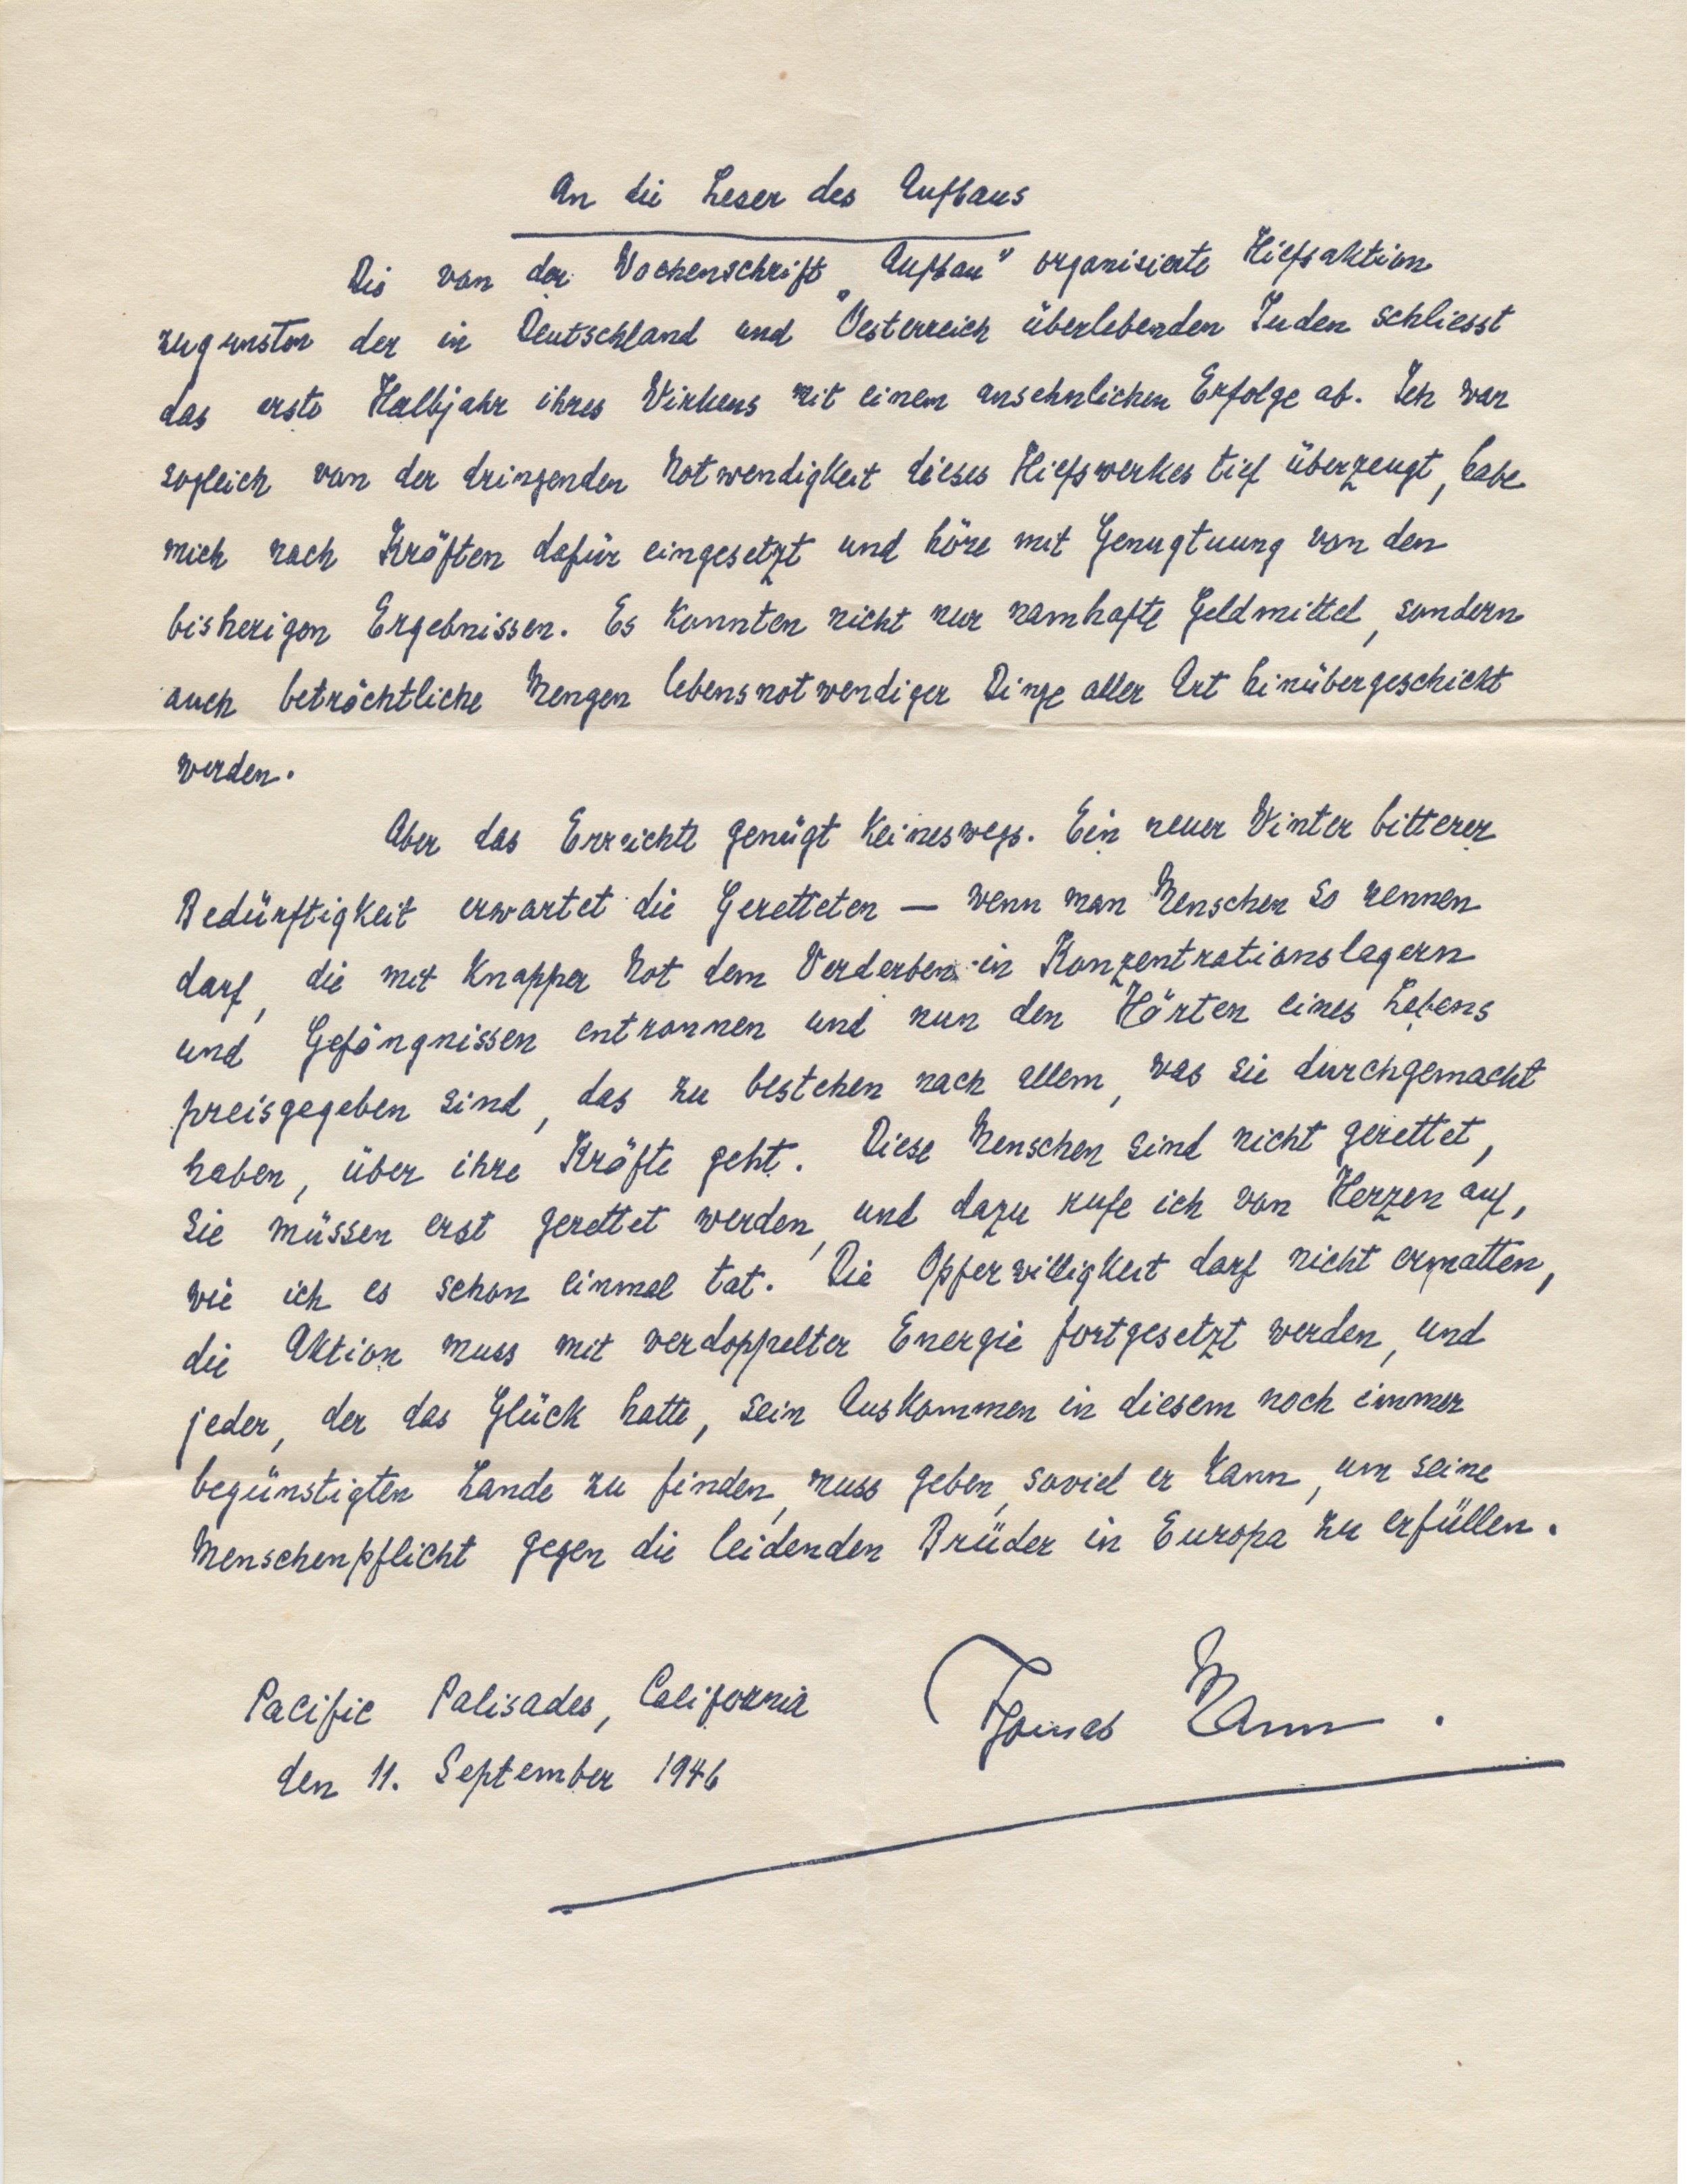 An die Leser des Aufbaus
Die von der Wochenschrift „Aufbau" organisierte Hilfsaktion
zugunsten der in Deutschland und Oesterreich überlebenden Juden schliesst
das erste Halbjahr ihres Wirkens mit einem ansehnlichen Erfolge ab. Ich war
sogleich von der dringenden Notwendigkeit dieses Hilfswerkes tief überzeugt, habe
mich nach Kräften dafür eingesetzt und höre mit Genugtuung von den
bisherigen Ergebnissen. Es konnten nicht nur namhafte Geldmittel, sondern
auch beträchtliche Mengen lebensnotwendiger Dinge aller Art hinübergeschickt
werden.
Aber das Erreichte genügt keineswegs. Ein neuer Winter bitterer
Bedürftigkeit erwartet die Geretteten — wenn man Menschen so nennen
darf, die mit knapper Not dem Verderben in Konzentrationslagern
und Gefängnissen entronnen und nun den Härten eines Lebens
preisgegeben sind, das zu bestehen nach allem, was sie durchgemacht
haben, über ihre Kräfte geht. Diese Menschen sind nicht gerettet,
sie müssen erst gerettet werden, und dazu rufe ich von Herzen auf,
wie ich es schon einmal tat. Die Opferwilligkeit darf nicht ermatten,
die Aktion muss mit verdoppelter Energie fortgesetzt werden, und
jeder, der das Glück hatte, sein Auskommen in diesem noch immer
begünstigten Lande zu finden, muss geben, soviel er kann, um seine
Menschenpflicht gegen die leidenden Brüder in Europa zu erfüllen.
Pacific Palisades, California Thomas Mann.
den 11. September 1946